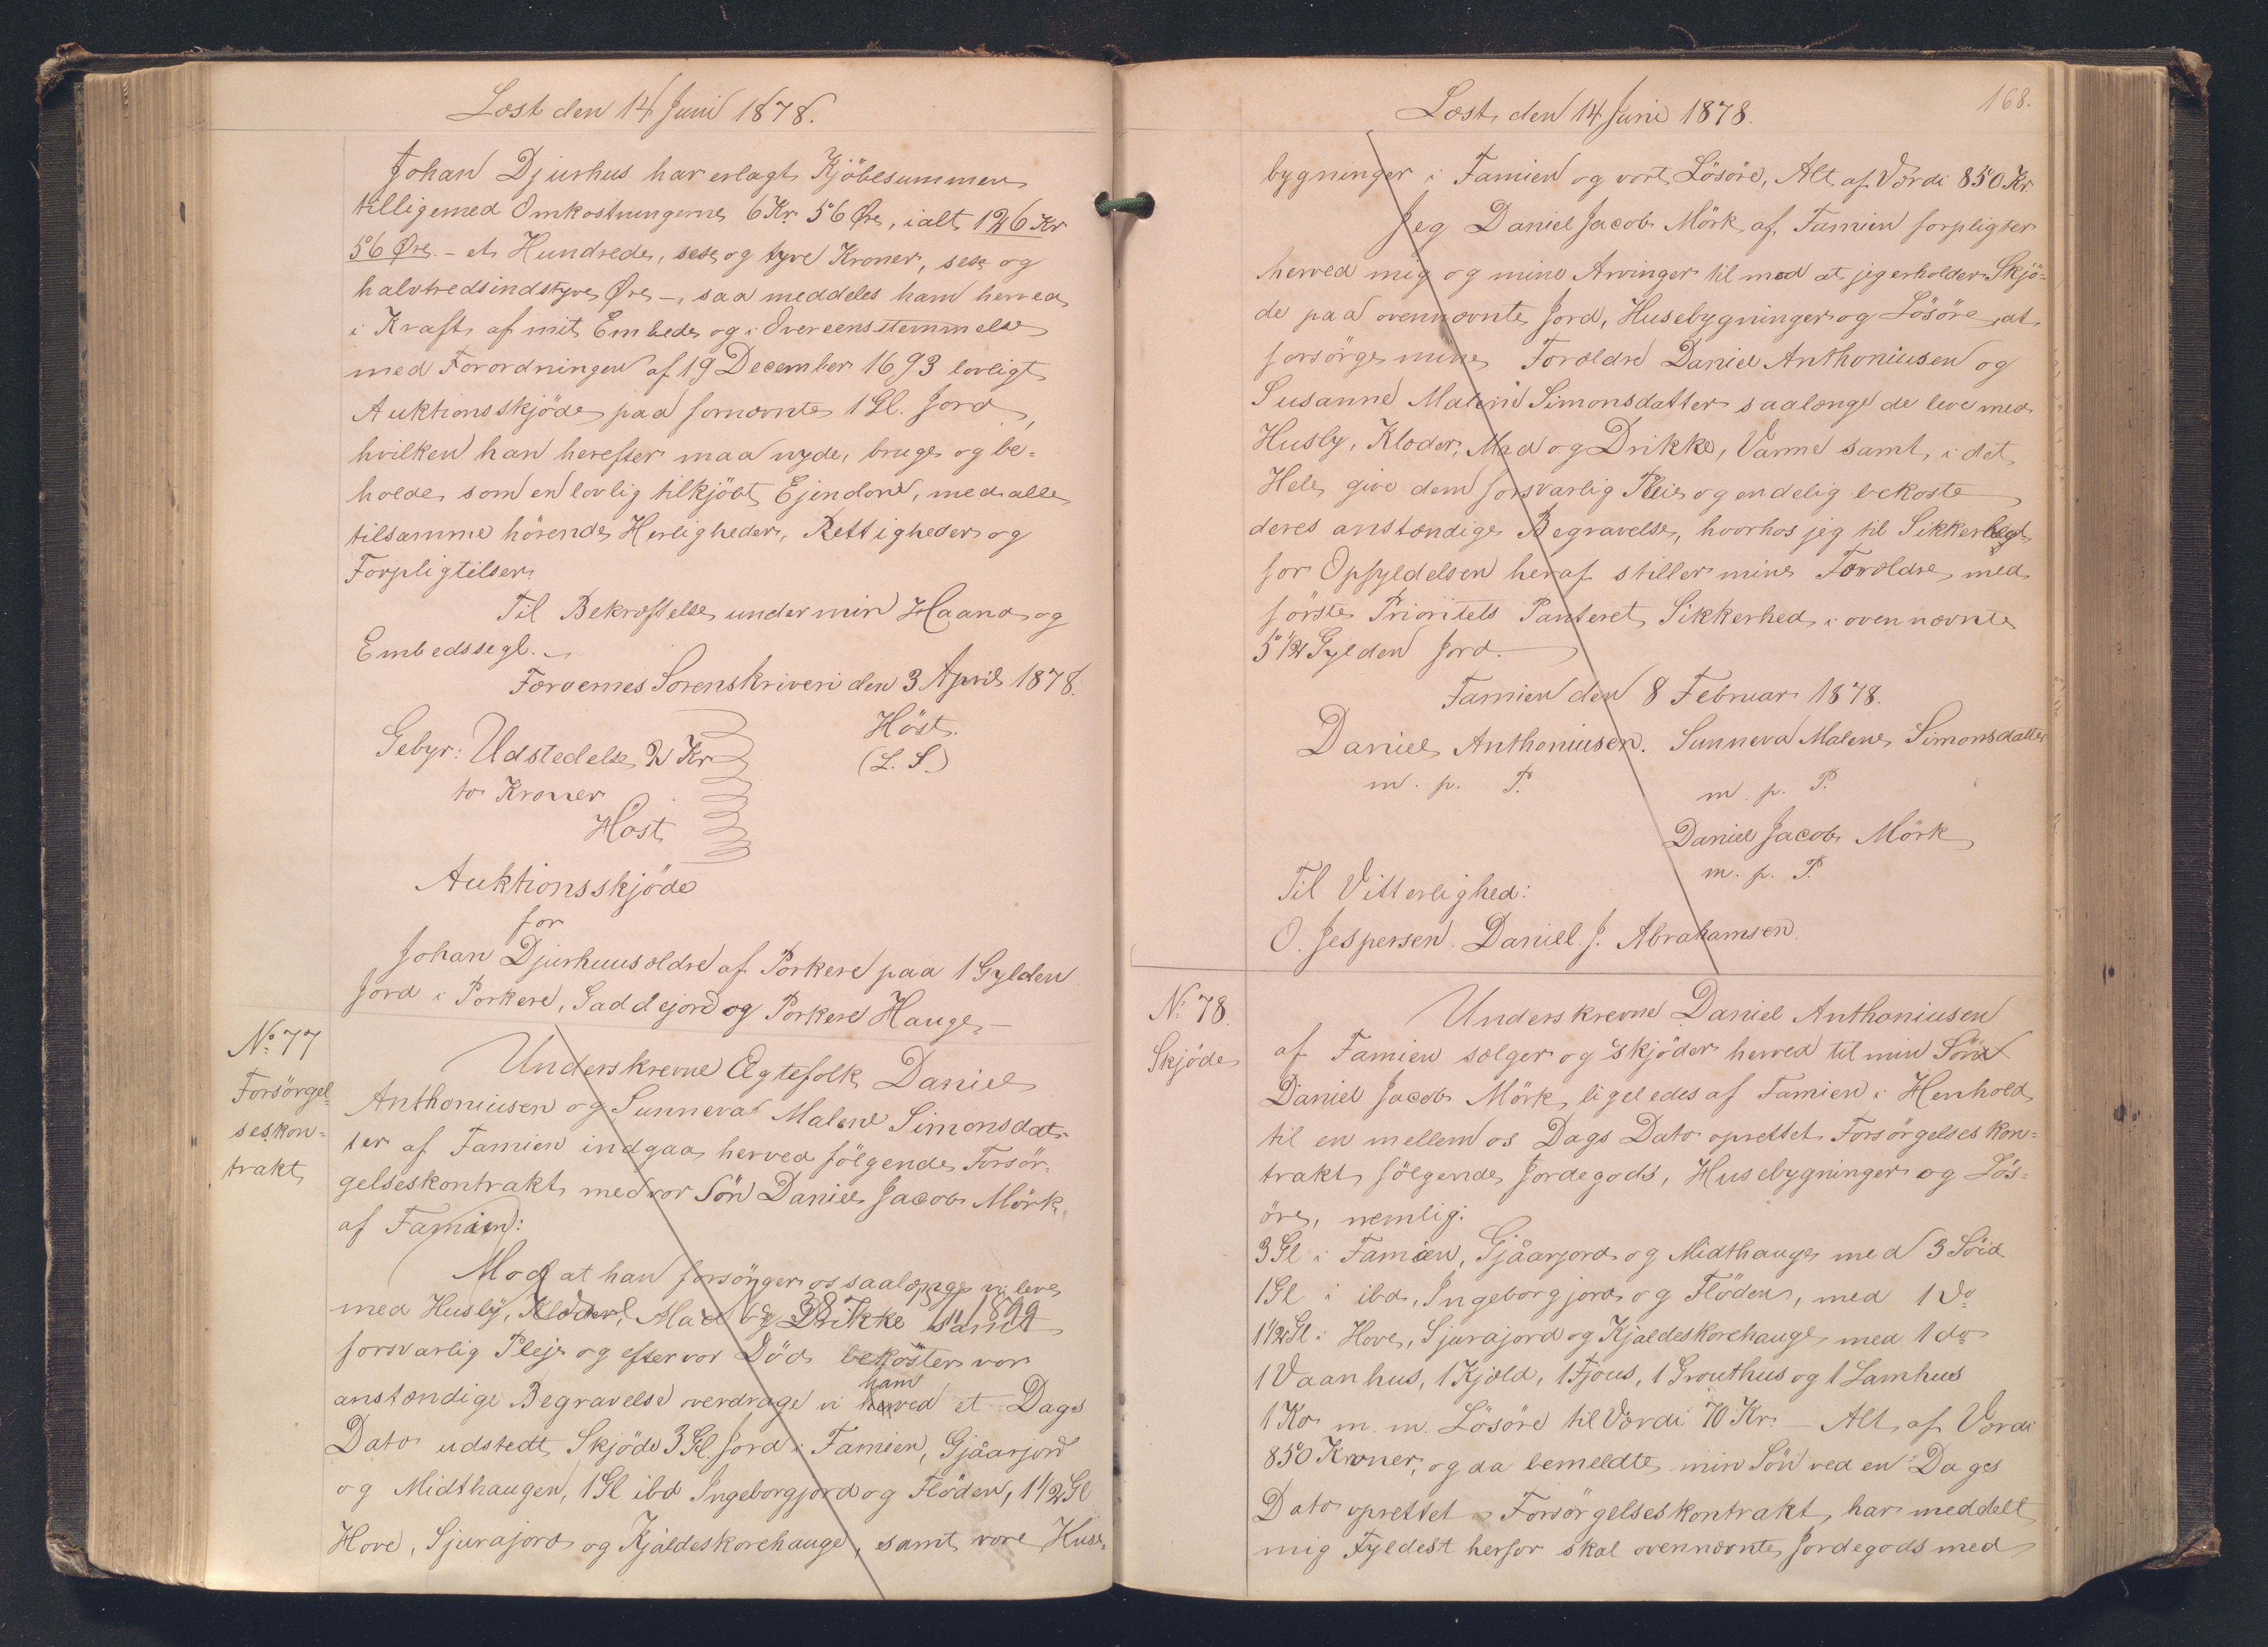 Læst den 14 Juni 1878.
Johan Djurhus har erlagt Kjöbesummen
tilligemed Omkostningerne 6 Kr 56 Øre, ialt 126 Kr
56 Øre. - et Hundrede, sex og tyve Kroner, sex og
halvtredsindstyve Øre -, saa meddeles ham herved
i Kraft af mit Embede og i Overeensstemmelse
med Forordningen af 19 December 1693 lovligt
Auktionsskjöde paa fornævnte 1 Gl. Jord,
hvilken han herefter maa nyde, bruge og be=
holde som en lovlig tilkjöbt Ejendom, med alle
tilsamme hörende Herligheder, Rettigheder og
Forpligtelser.
Til Bekræftelse under min Haand og
Embedssegl.
Færøernes Sorenskriveri den 3 April 1878.
Höst.
(L. S.)
Gebyr: Udstedelse 2 Kr
to Kroner
Höst
Auktionsskjöde
for
Johan Djurhuus ældre af Porkere paa 1 Gylden
Jord i Porkere, Gaddejord og Porkere Hauge. -
No 77
Forsörgel=
seskon=
trakt
Underskrevne Ægtefolk Daniel
Anthoniusen og Sunneva Malene Simonsdat=
ter af Famien indgaa herved fölgende Forsör=
gelseskontrakt med vor Sön Daniel Jacob Mörk
af Famien:
Mod at han forsörger os saalænge vi leve
med Husly, Klæder, Mad og Drikke samt
forsvarlig Pleje og efter vor Död bekoster vor
anstændige Begravelse overdrage vi ham ved et Dags
Dato udstedt Skjöde 3 Gl. Jord i Famien, Gjåarjord
og Midthaugen, 1 Gl ibd Ingeborgjord og Flöden, 1 1/2 Gl
Hove, Sjurajord og Kjældeskorehauge, samt vore Huse=
168.
Læst den 14 Juni 1878.
bygninger i Famien og vort Lösöre, Alt af Værdi 850 Kr
Jeg Daniel Jacob Mörk af Famien forpligter
herved mig og mine Arvinger til mod at jeg erholder Skjö=
de paa ovennævnte Jord, Husebygninger og Lösöre, at
forsörge mine Forældre Daniel Anthoniusen og
Susanne Malene Simonsdatter saalænge de leve med
Husly, Klæder, Mad og Drikke, Varme samt i det
Hele give dem forsvarlig Pleie og endelig bekoste
deres anstændige Begravelse, hvorhos jeg til Sikkerhed
for Opfyldelsen heraf stiller mine Forældre med
förste Prioritets Panteret Sikkerhed i ovennævnte
5 1/2 Gylden Jord.
Famien den 8 Februar 1878.
Daniel Anthoniusen. Sunneva Malene Simonsdatter
m. p. P. m. p. P.
Daniel Jacob Mörk
m. p. P.
Til Vitterlighed:
O. Jespersen. Daniel J. Abrahamsen.
No 78.
Skjöde
Underskrevne Daniel Anthoniusen
af Famien sælger og skjöder herved til min Sön
Daniel Jacob Mörk, ligeledes af Famien i Henhold
til en mellem os Dags Dato oprettet Forsörgelseskon=
trakt fölgende Jordegods, Husebygninger og Lös=
öre, nemlig:
3 Gl i Famien, Gjåarjord og Midthauge med 3 Söid
1 Gl i ibd, Ingeborgjord og Flöden, med 1 Do
1 1/2 Gl i Hove, Sjurajord og Kjaldeskorehauge med 1 do
1 Vaanhus, 1 Kjæld, 1 Fjöus, 1 Grouthus og 1 Lamhus
1 Ko m. m. Lösöre til Værdi 70 Kr. Alt af Værdi
850 Kroner, og da bemeldte min Sön ved en Dags
Dato oprettet Forsörgelseskontrakt har meddelt
mig Fyldest herfor skal ovennævnte Jordegods med